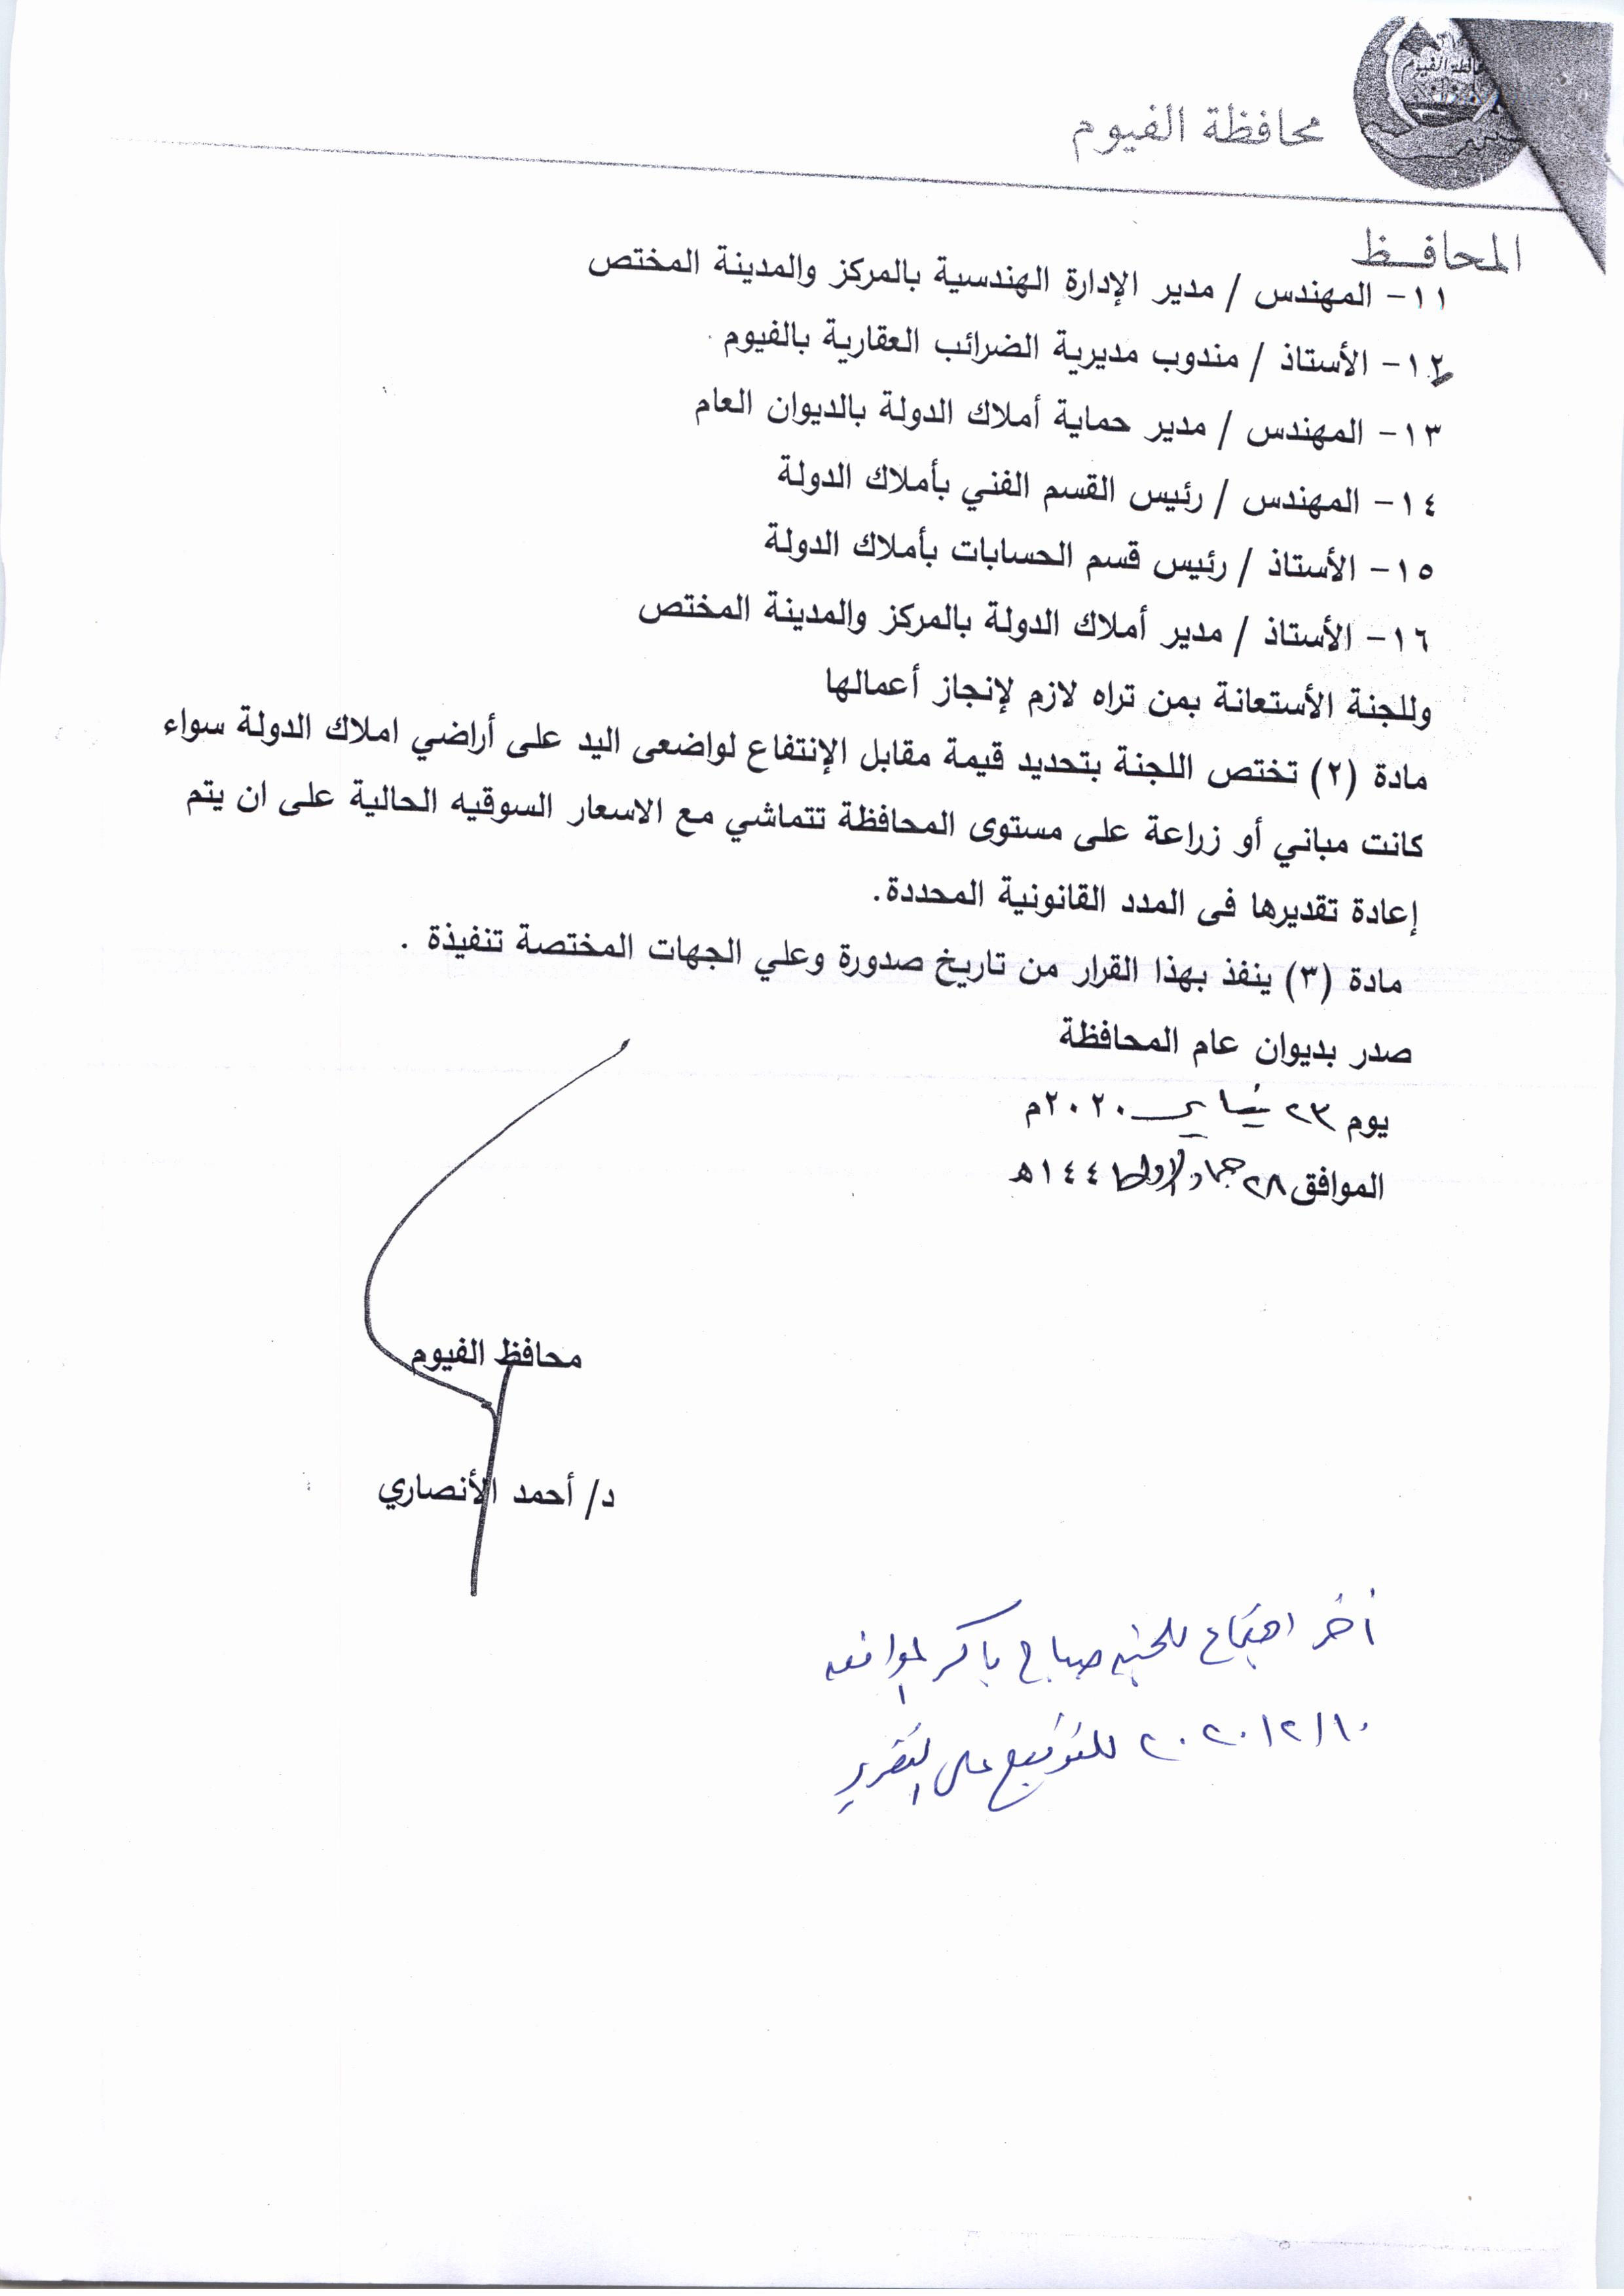 محافظة الفيوم
المحافـظ
١١- المهندس / مدير الإدارة الهندسية بالمركز والمدينة المختص
١٢- الأستاذ / مندوب مديرية الضرائب العقارية بالفيوم
١٣- المهندس / مدير حماية أملاك الدولة بالديوان العام
١٤- المهندس / رئيس القسم الفني بأملاك الدولة
١٥- الأستاذ / رئيس قسم الحسابات بأملاك الدولة
١٦- الأستاذ / مدير أملاك الدولة بالمركز والمدينة المختص
وللجنة الأستعانة بمن تراه لازم لإنجاز أعمالها
مادة (٢) تختص اللجنة بتحديد قيمة مقابل الإنتفاع لواضعى اليد على أراضي املاك الدولة سواء
كانت مباني أو زراعة على مستوى المحافظة تتماشي مع الاسعار السوقيه الحالية على ان يتم
إعادة تقديرها فى المدد القانونية المحددة.
مادة (٣) ينفذ بهذا القرار من تاريخ صدورة وعلي الجهات المختصة تنفيذة .
صدر بديوان عام المحافظة
يوم ٢٣ يناير ٢٠٢٠م
الموافق ٢٨ جماد الاول ١٤٤١ه
محافظ الفيوم
د/ أحمد الأنصاري
آخر اجتماع للجنه صباح باكر الموافق
٢٠٢٠/٢/١٠ للتوقيع على التقرير